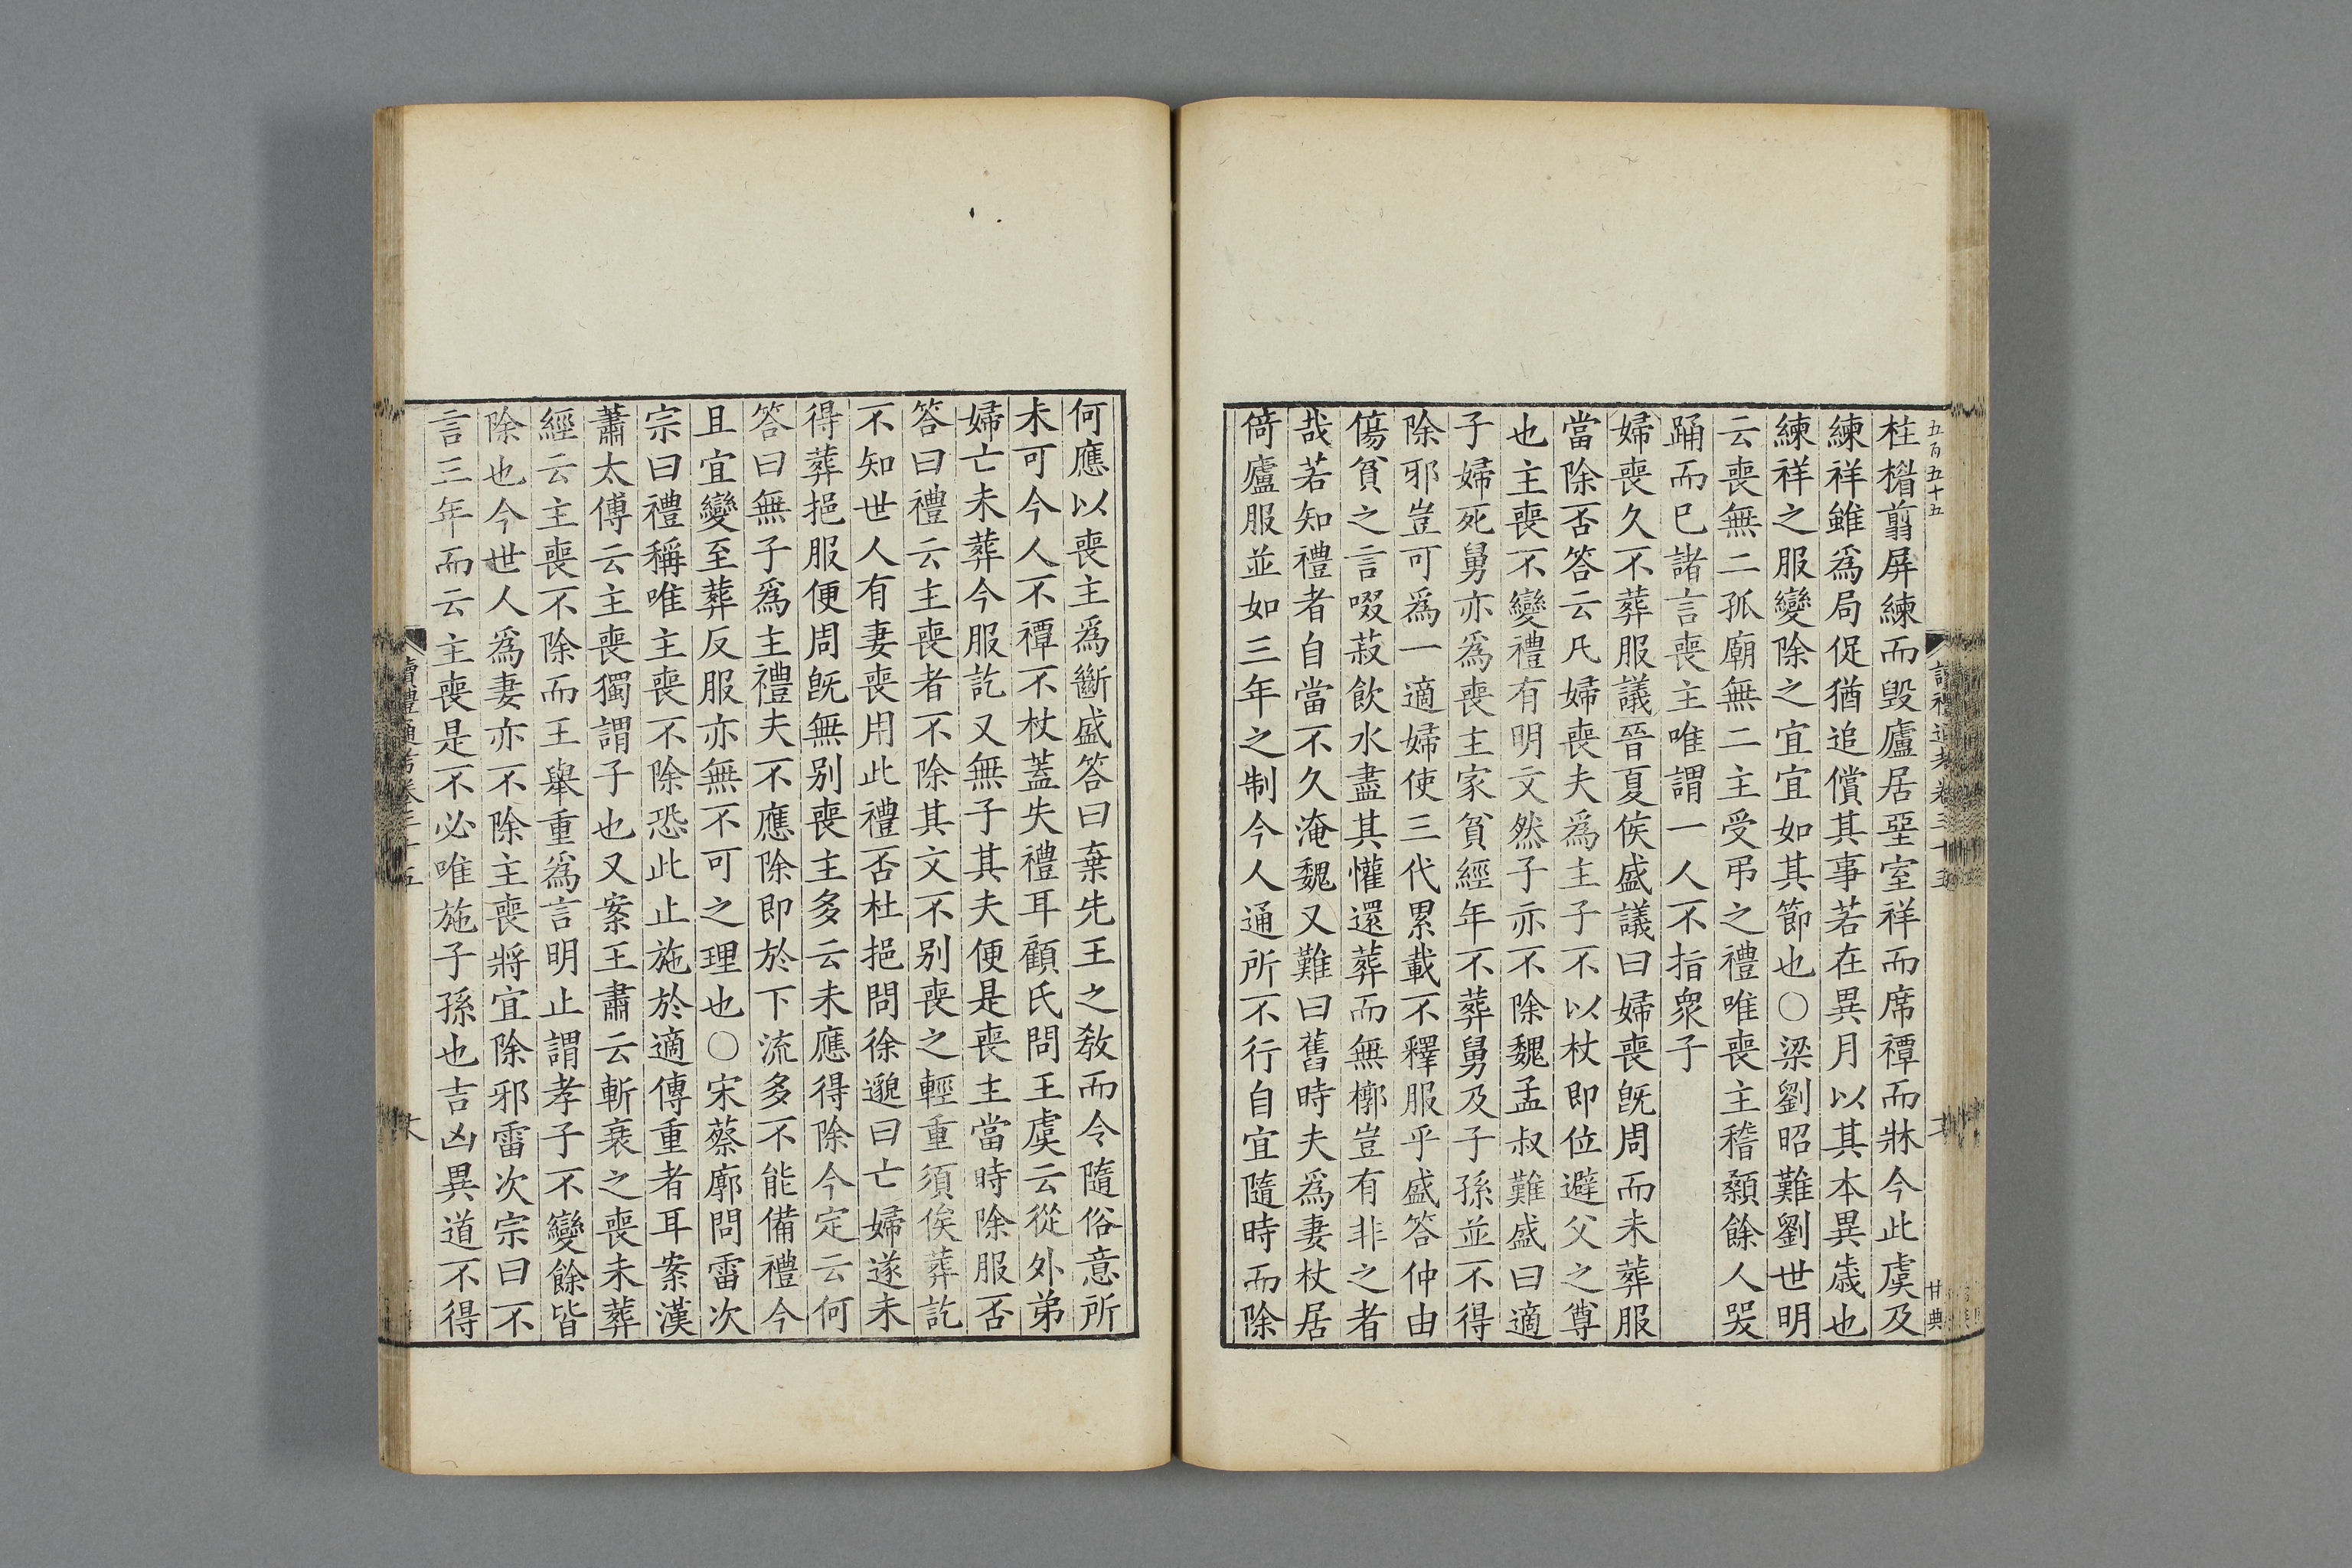 五百五十五
讀禮通考卷三十五
甘典
柱楣翦屏練而毀廬居堊室祥而席禫而牀今此虞及
練祥雖爲局促猶追償其事若在異月以其本異歲也
練祥之服變除之宜宜如其節也○梁劉昭難劉世明
云喪無二孤廟無二主受弔之禮唯喪主稽顙餘人哭
踊而已諸言喪主唯謂一人不指衆子
婦喪久不葬服議晉夏侯盛議曰婦喪旣周而未葬服
當除否答云凡婦喪夫爲主子不以杖即位避父之尊
也主喪不變禮有明文然子亦不除魏孟叔難盛曰適
子婦死舅亦爲喪主家貧經年不葬舅及子孫並不得
除邪豈可爲一適婦使三代累載不釋服乎盛答仲由
傷貧之言啜菽飲水盡其懽還葬而無槨豈有非之者
哉若知禮者自當不久淹魏又難曰舊時夫爲妻杖居
倚廬服並如三年之制今人通所不行自宜隨時而除
何應以喪主爲斷盛答曰棄先王之敎而令隨俗意所
未可今人不禫不杖蓋失禮耳顧氏問王虞云從外弟
婦亡未葬今服訖又無子其夫便是喪主當時除服否
答曰禮云主喪者不除其文不别喪之輕重須俟葬訖
不知世人有妻喪用此禮否杜挹問徐邈曰亡婦遂未
得葬挹服便周旣無别喪主多云未應得除今定云何
答曰無子爲主禮夫不應除即於下流多不能備禮今
且宜變至葬反服亦無不可之理也○宋蔡廓問雷次
宗曰禮稱唯主喪不除恐此止施於適傳重者耳案漢
蕭太傅云主喪獨謂子也又案王肅云斬衰之喪未葬
經云主喪不除而王舉重爲言明止謂孝子不變餘皆
除也今世人爲妻亦不除主喪將宜除邪雷次宗曰不
言三年而云主喪是不必唯施子孫也吉凶異道不得
讀禮通考卷三十五